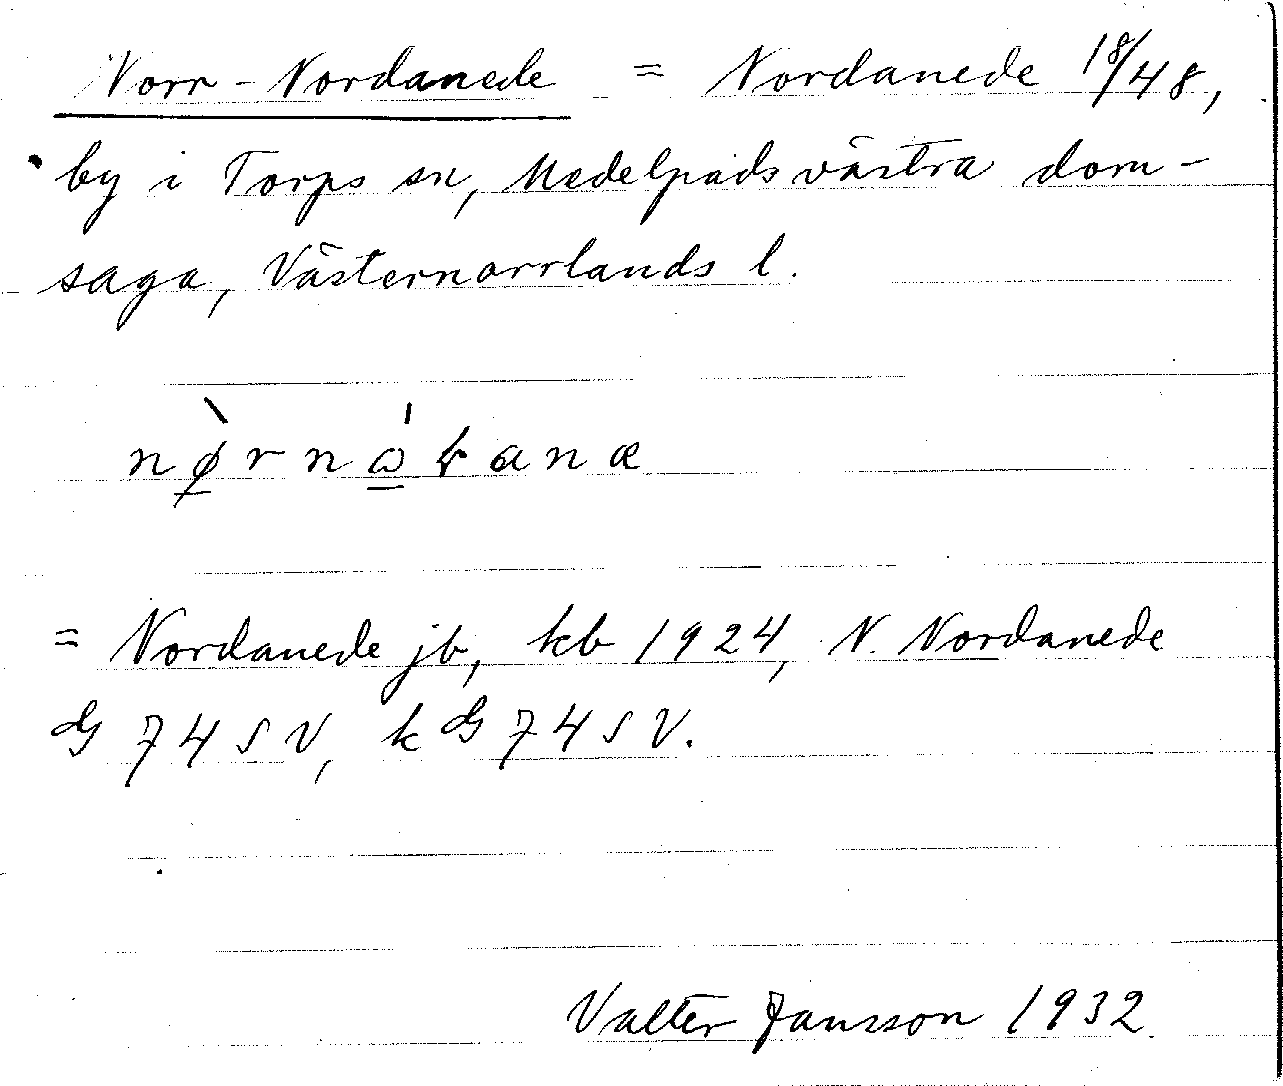 Norr-Nordanede = Nordanede 18/48,
by i Torps sn, Medelpads västra dom-
saga, Västernorrlands l.
= Nordanede jb, kb 1924, N. Nordanede
G 74 SV, k G 74 SV.
Valter Jansson 1932